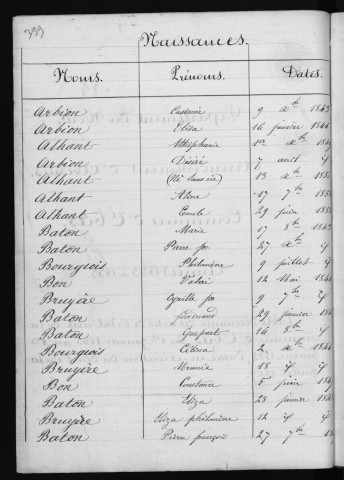 399
Naissances.
Noms. Prénoms. Dates.
Arbion Casimir 9 Xbre 1843
Arbion Elisa 16 janvier 1846
Alhant Stéphanie 1er Xbre 184
Arbion Désiré 7 avril if
Alhant (Né sans vie) 13 Xbre 185
Alhant Aline 17 7bre 185
Alhant Emile 29 juin 185
Baton Marie 17 8bre 1843
Baton Pierre fois 27 Xbre if
Bourgeois Philomène 9 juillet if
Bon Valérie 12 Mai 184
Bruyère Cyrille fois 9 7bre if
Baton Ferdinand 22 janvier 184
Baton Gaspard 16 8bre if
Bourgeois Célina 2 Xbre 184
Bruyère 18 if if
Bon Constance 5 juin 184
Baton Eliza 28 janvier 184
Bruyère Eliza philomène 12 if if
Baton Pierre françois 27 7bre 184